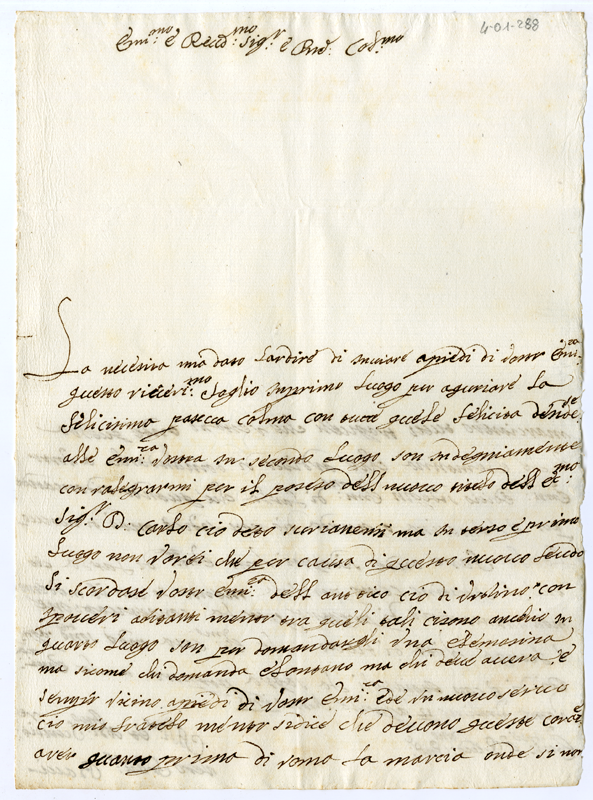 4-01-288
Em.mo e Reed.mo Sig.r e Pne. Col.mo
La necesita mia dato lardire di inviare apiedi di Vostr Emi.za
questo riverit.mo foglio inprimo Luogo per aguriare La
felicisima pascua colma con tuta quele felicita
alle Emi.za Vostra in secondo Luogo son indegniamente
con ralegrarmi per il poseso dell nuovo titolo dell ec.mo
Sig.r D: Carlo cio deto ma in terso e primo
Luogo non Vorei che per causa di questo nuovo feudo
Si scordase Vostr Emi.za dell antico cio di Urbino, con
i poveri abitanti mentr tra queli tali cisono anchio in
quarto Luogo son per domandargli Una elemosina
ma sicome chi domanda e lontano ma chi deve e
sempre vicino apiedi di Vostr Emi.za
cio mio fratelo mentr sidice che devono queste
aver quanto prima di roma La marcia onde si